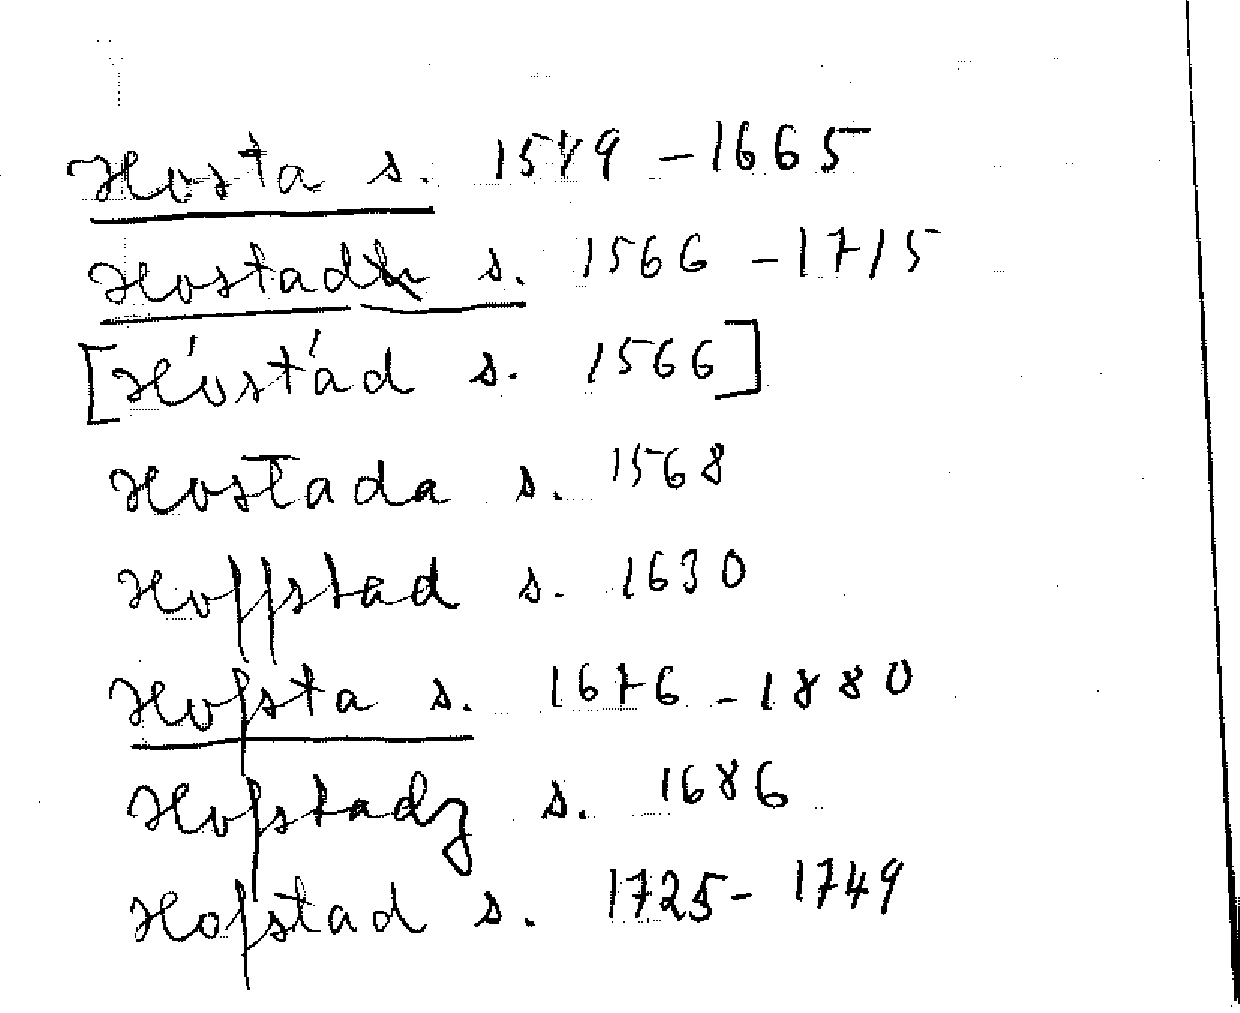 Hosta s. 1549 - 1665
Hostad s. 1566 - 1715
[Hóstád s. 1566]
Hostada s. 1568
Hoffstad s. 1630
Hofsta s. 1676 - 1880
Hofstadz s. 1686
Hofstad s. 1725 - 1749